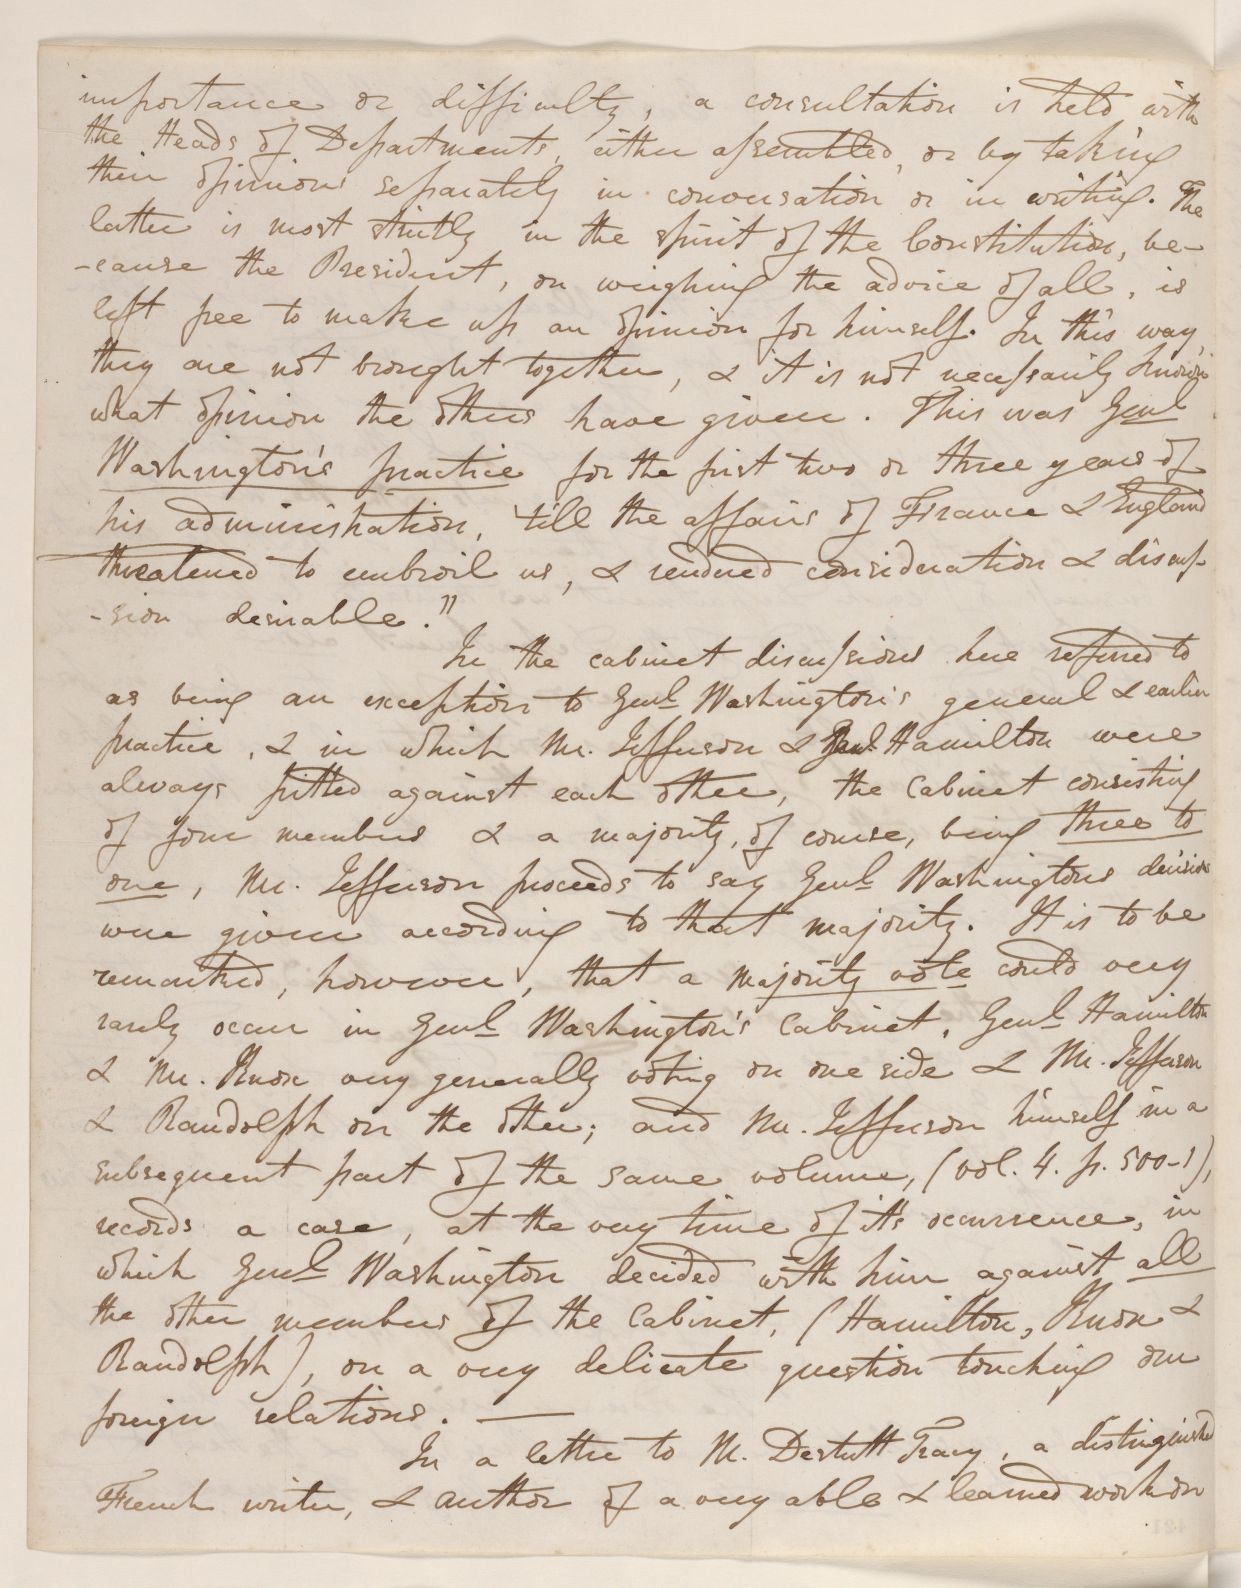 importance or difficulty, a consultation is held with
the Heads of Departments, either assembled, or by taking
their opinions separately in conversation or in writing. The
latter is most strictly in the spirit of the Constitution, be-
-cause the President, on weighing the advice of all, is
left free to make up an opinion for himself. In this way,
they are not brought together, & it is not necessarily known
what opinion the others have given. This was Genl
Washington's practice for the first two or three years of
his administration, 'till the affairs of France & England
threatened to embroil us, & rendered consideration & discus-
-sion desirable."
In the cabinet discussions here referred to
as being an exception to Genl Washington's general & earlier
practice, & in which Mr. Jefferson & Genl Hamilton were
always pitted against each other, the Cabinet consisting
of four members & a majority, of course, being three to
one, Mr. Jefferson proceeds to say Genl Washingtons decisions
were given according to that majority. It is to be
remarked, however, that a majority vote could very
rarely occur in Genl Washington's Cabinet, Genl Hamilton
& Mr. Knox very generally voting on one side & Mr. Jefferson
& Randolph on the other; and Mr. Jefferson himself in a
subsequent part of the same volume, (vol. 4. p. 500-1),
records a case, at the very time of it's occurrence, in
which Genl Washington decided with him against all
the other members of the Cabinet, (Hamilton, Knox &
Randolph), on a very delicate question touching our
foreign relations. —
In a letter to M. Destutt Tracy, a distinguished
French writer, & author of a very able & learned work on